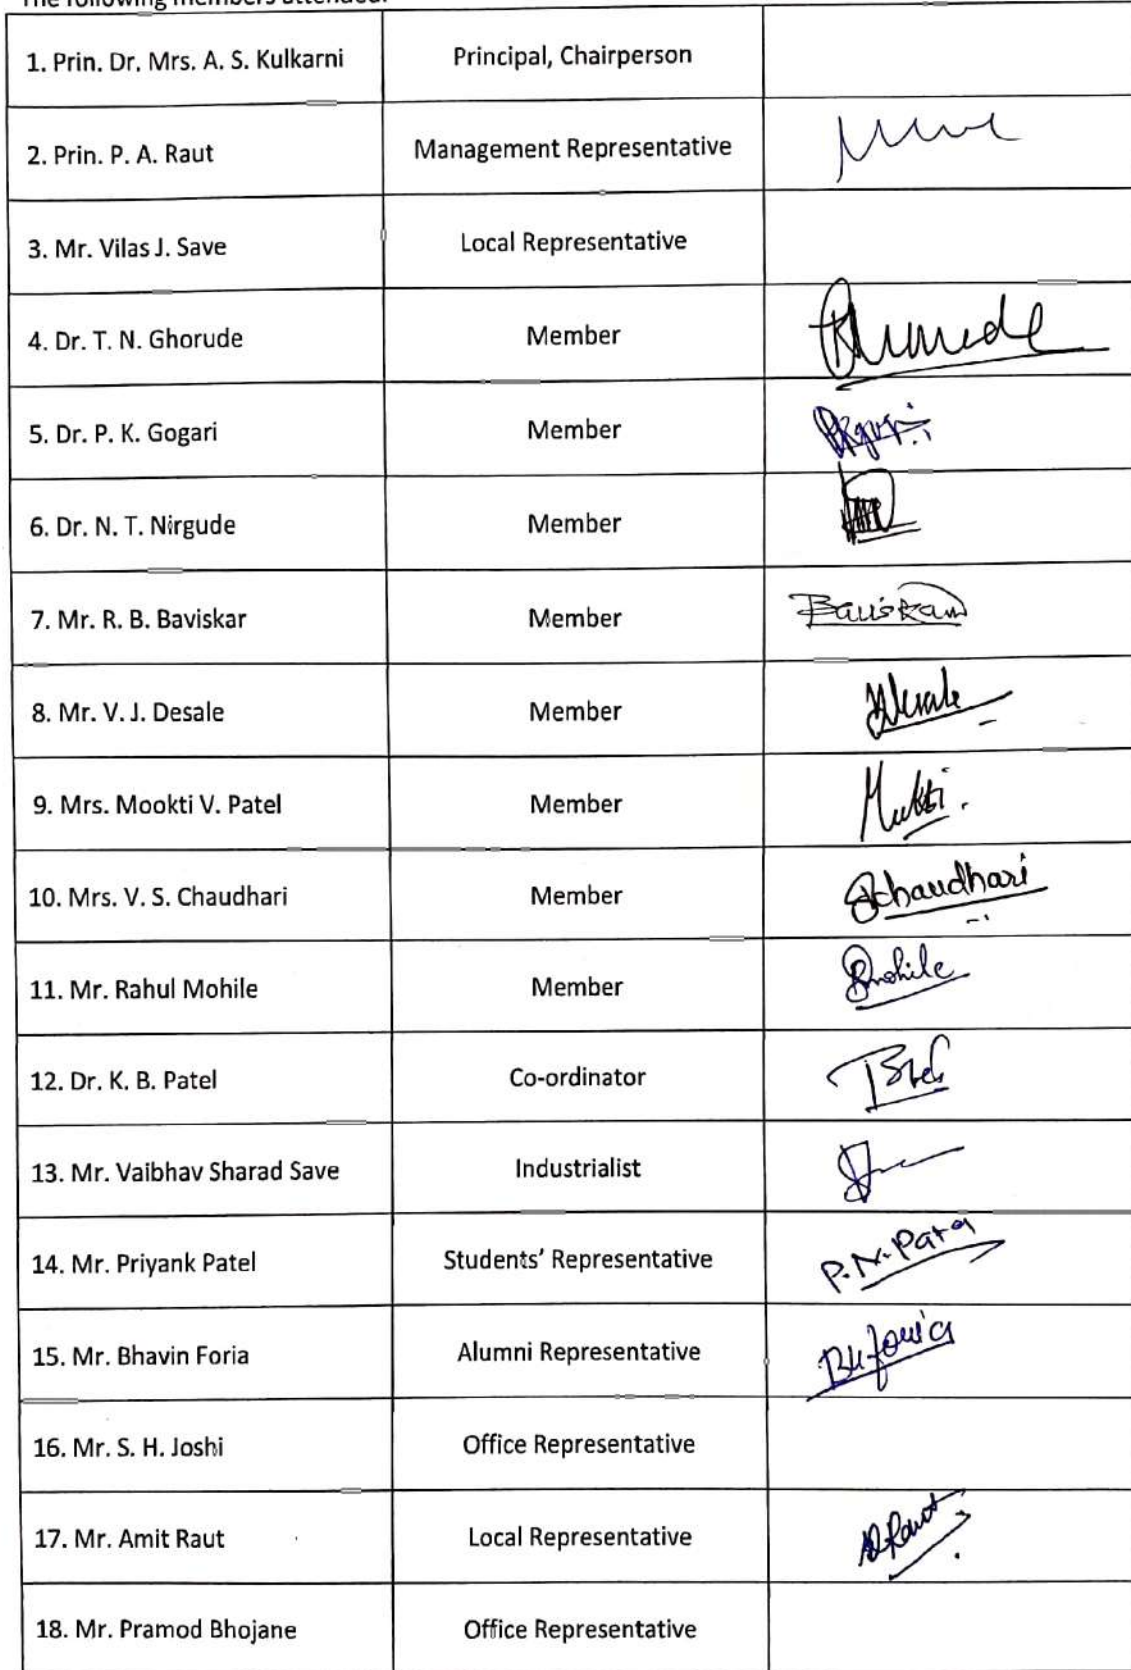 The following members attended:
1. Prin. Dr. Mrs. A. S. Kulkarni Principal, Chairperson
2. Prin. P. A. Raut Management Representative
3. Mr. Vilas J. Save Local Representative
4. Dr. T. N. Ghorude Member
5. Dr. P. K. Gogari Member
6. Dr. N. T. Nirgude Member
7. Mr. R. B. Baviskar Member Baviskar
8. Mr. V. J. Desale Member
9. Mrs. Mookti V. Patel Member Mukti.
10. Mrs. V. S. Chaudhari Member Schaudhari
11. Mr. Rahul Mohile Member Rmohile
12. Dr. K. B. Patel Co-ordinator
13. Mr. Vaibhav Sharad Save Industrialist
14. Mr. Priyank Patel Students' Representative P. N. Patel
15. Mr. Bhavin Foria Alumni Representative
16. Mr. S. H. Joshi Office Representative
17. Mr. Amit Raut Local Representative ARaut
18. Mr. Pramod Bhojane Office Representative